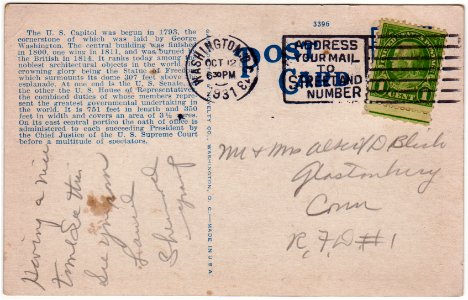 The U. S. Capitol was begun in 1793, the
cornerstone of which was laid by George
Washington. The central building was finished
in 1800, one wing in 1811, and was burned by
the British in 1814. It ranks today among the
noblest architectural objects in the world. The
crowning glory being the Statue of Freedom
which surmounts its dome 307 feet above the
esplanade. At one end is the U. S. Senate, at
the other the U. S. House of Representatives,
the combined duties of whose members represent
the greatest governmental undertaking
in the world. It is 751 feet in length and 350
feet in width and covers an area of 3½ acres.
On its east central portion the oath of office is
administered to each succeeding President by
the Chief Justice of the U. S. Supreme Court
before a multitude of spectators.
WASHINGTON, D. C. — MADE IN U.S.A.
3396
POST CARD
WASHINGTON
OCT 12
6 30PM
1931
ADDRESS
YOUR MAIL
TO
STREET AND
NUMBER
Mr & Mrs D
Glastonbury
Conn
R.F.D #1
Having a nice
time
See you soon
Love